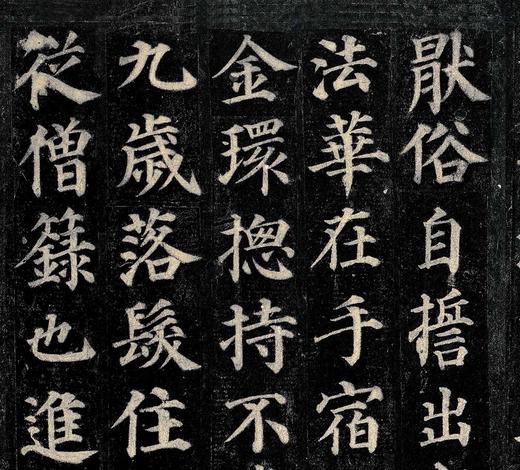 猒俗自擔出
法華在手宿
金環揔持不
九歲落髮住
從僧籙也進